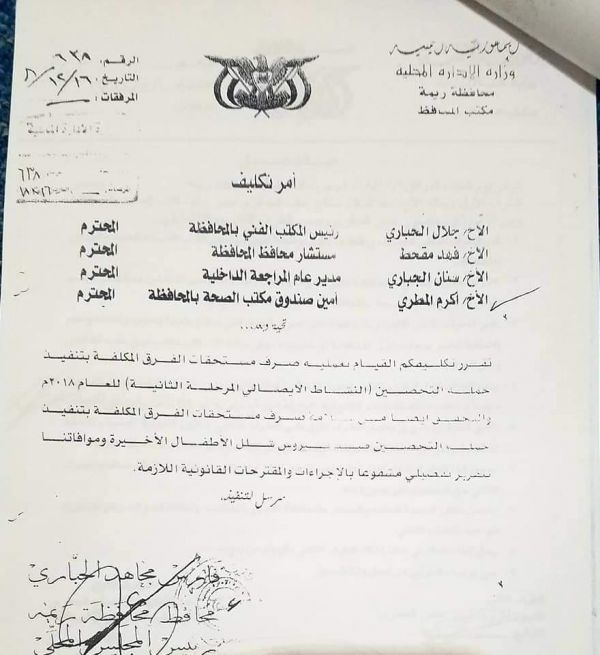 الجمهورية اليمنية
وزارة الإدارة المحلية
محافظة ريمة
مكتب المحافظ
الرقم: ٦٣٨
التاريخ: ١٦/١٢/
المرفقات:
٦٣٨
أمر تكليف
الأخ/ جلال الجباري رئيس المكتب الفني بالمحافظة المحترم
الأخ/ فهد مقحط مستشار محافظ المحافظة المحترم
الأخ/ سنان الجباري مدير عام المراجعة الداخلية المحترم
الأخ/ أكرم المطري أمين صندوق مكتب الصحة بالمحافظة المحترم
تحية وبعد...
تقرر تكليفكم القيام بعملية صرف مستحقات الفرق المكلفة بتنفيذ
حملة التحصين (النشاط الايصالي المرحلة الثانية) للعام ٢٠١٨م
والتحقق ايضا من صرف مستحقات الفرق المكلفة بتنفيذ
حملة التحصين ضد فيروس شلل الأطفال الأخيرة وموافاتنا
بتقرير تفصيلي مشفوعا بالإجراءات والمقترحات القانونية اللازمة.
مرسل للتنفيذ.
فارس مجاهد الجباري
محافظ محافظة ريمه
رئيس المجلس المحلي